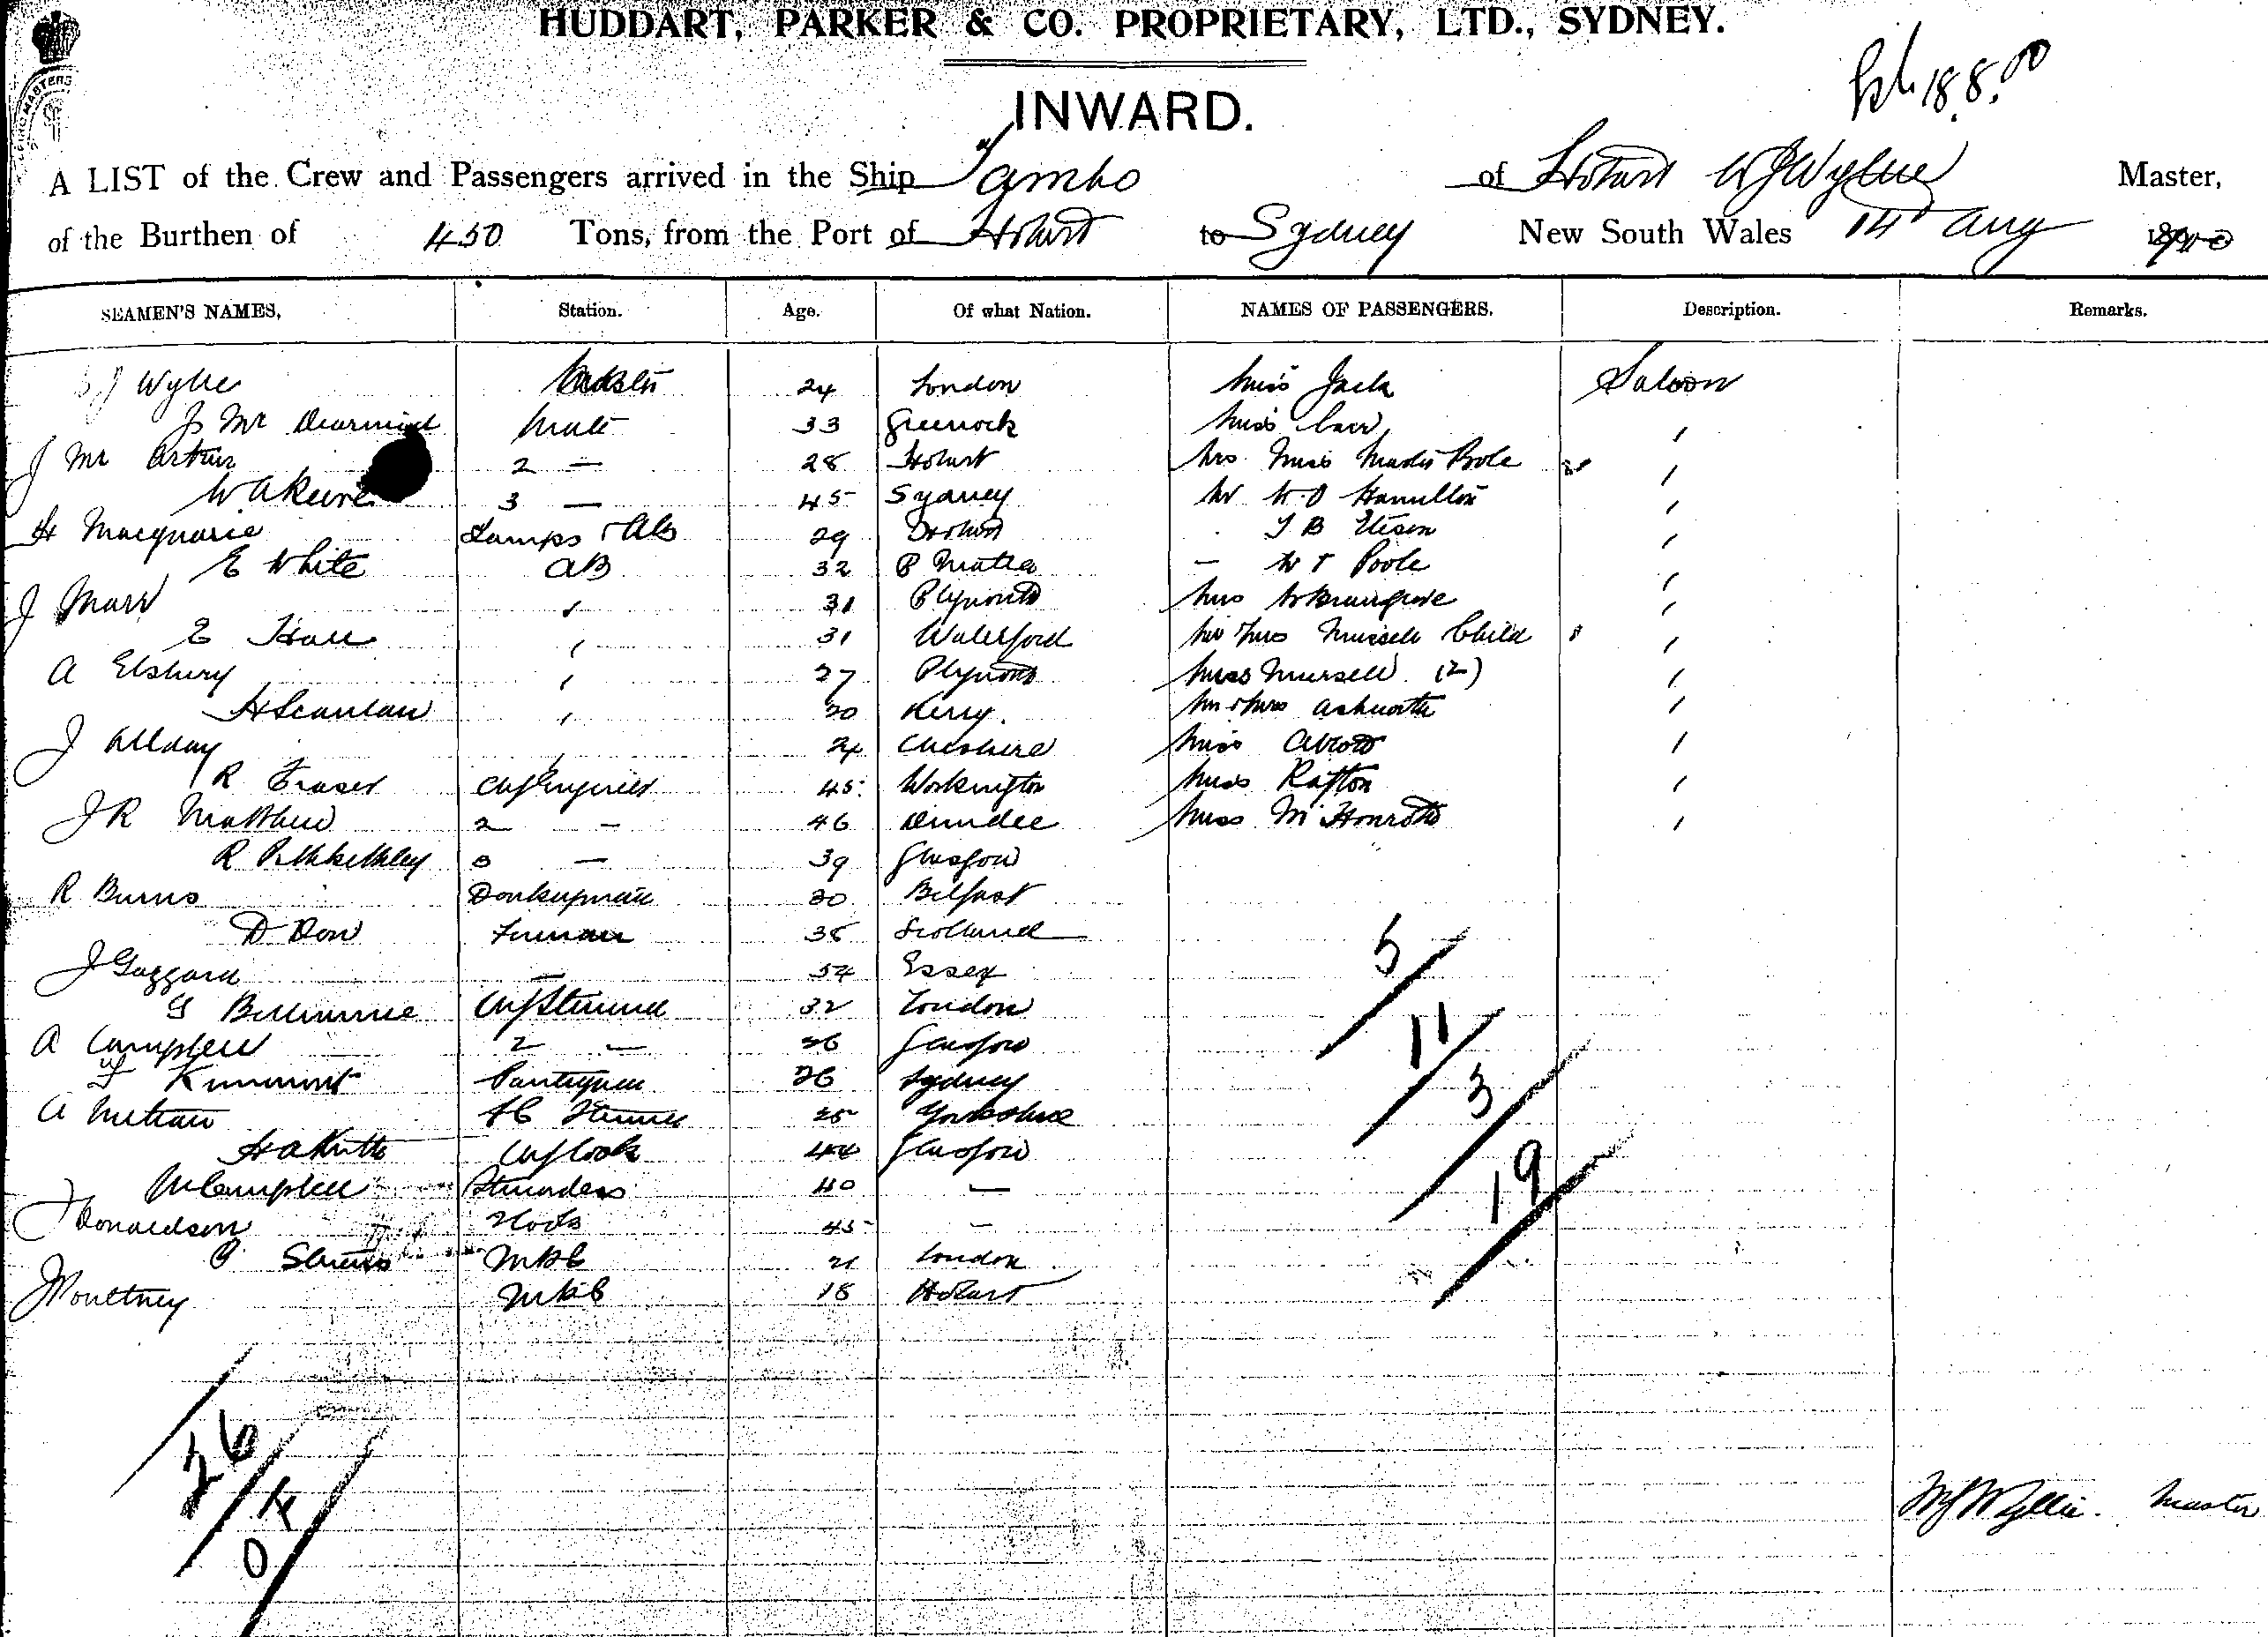 HUDDART, PARKER & CO. PROPRIETARY, LTD., SYDNEY.
18.8.00
INWARD.
A LIST of the Crew and Passengers arrived in the Ship Tambo of Hobart W J Wyllie Master,
of the Burthen of 450 Tons, from the Port of Hobart to Sydney New South Wales 14 Aug 1900
SEAMEN'S NAMES, Station. Age. Of what Nation. NAMES OF PASSENGERS. Description. Remarks.
J Wyllie Master 24 London Miss Jack Saloon
J Mc Dearmid Mate 33 Greenock Miss Carr "
J Mc Arthur 2 — 28 Hobart Mrs Miss Master Pole "
W A 3 — 45 Sydney Mr W. D Hamilton "
H Macquarie Lamps & AB 29 Hobart T B "
E White AB 32 P Matta — W T Poole "
J Marr " 31 Plymouth Mrs "
E Hall " 31 Waterford Mr & Mrs Mursell Child "
A Elsbury " 27 Plymouth Miss Mursell (2) "
H Scanlan " 20 Kerry. Mr & Mrs Ashworth "
J Allday " 24 Cheshire Miss Abbott "
R Fraser Chf Engineer 45 Workington Miss Rafton "
J R Matthew 2 — 46 Dundee Miss Mc "
R Pitkethley 3 — 39 Glasgow
R Burns Donkeyman 30 Belfast
D Don Fireman 35 Scotland
J Gaggard — 54 Essex
G Chf Steward 32 London
A Campbell 2 — 26 Glasgow
F Kinmont Pantryman 26 Sydney
A F C Steward 25 Yorkshire
H A Chf Cook 44 Glasgow
M Campbell Stewardess 40 —
J Donaldson 45 —
G 21 London
J Poultney 18 Hobart
5
11
3
19
26
0
W J Wyllie. Master